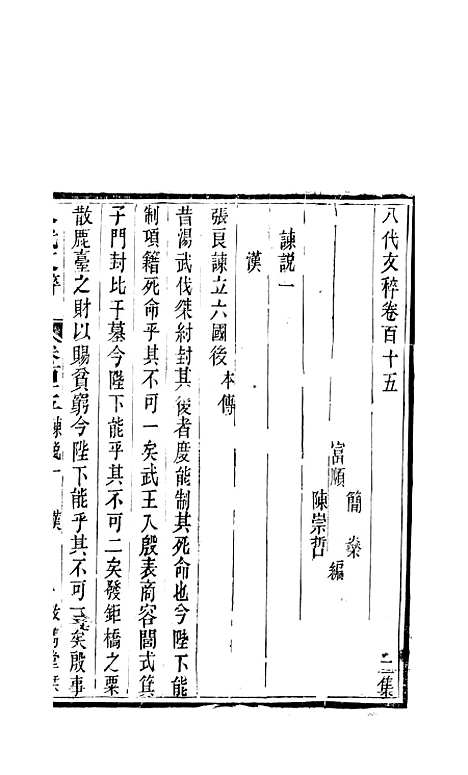 八代文稡卷百十五
二集
富順
簡燊
陳崇哲
編
諫說一
漢
張良諫立六國後 本傳
昔湯武伐桀紂封其後者度能制其死命也今陛下能
制項籍死命乎其不可一矣武王入殷表商容閭式箕
子門封比干墓今陛下能乎其不可二矣發鉅橋之粟
散鹿臺之財以賜貧窮今陛下能乎其不可三矣殷事